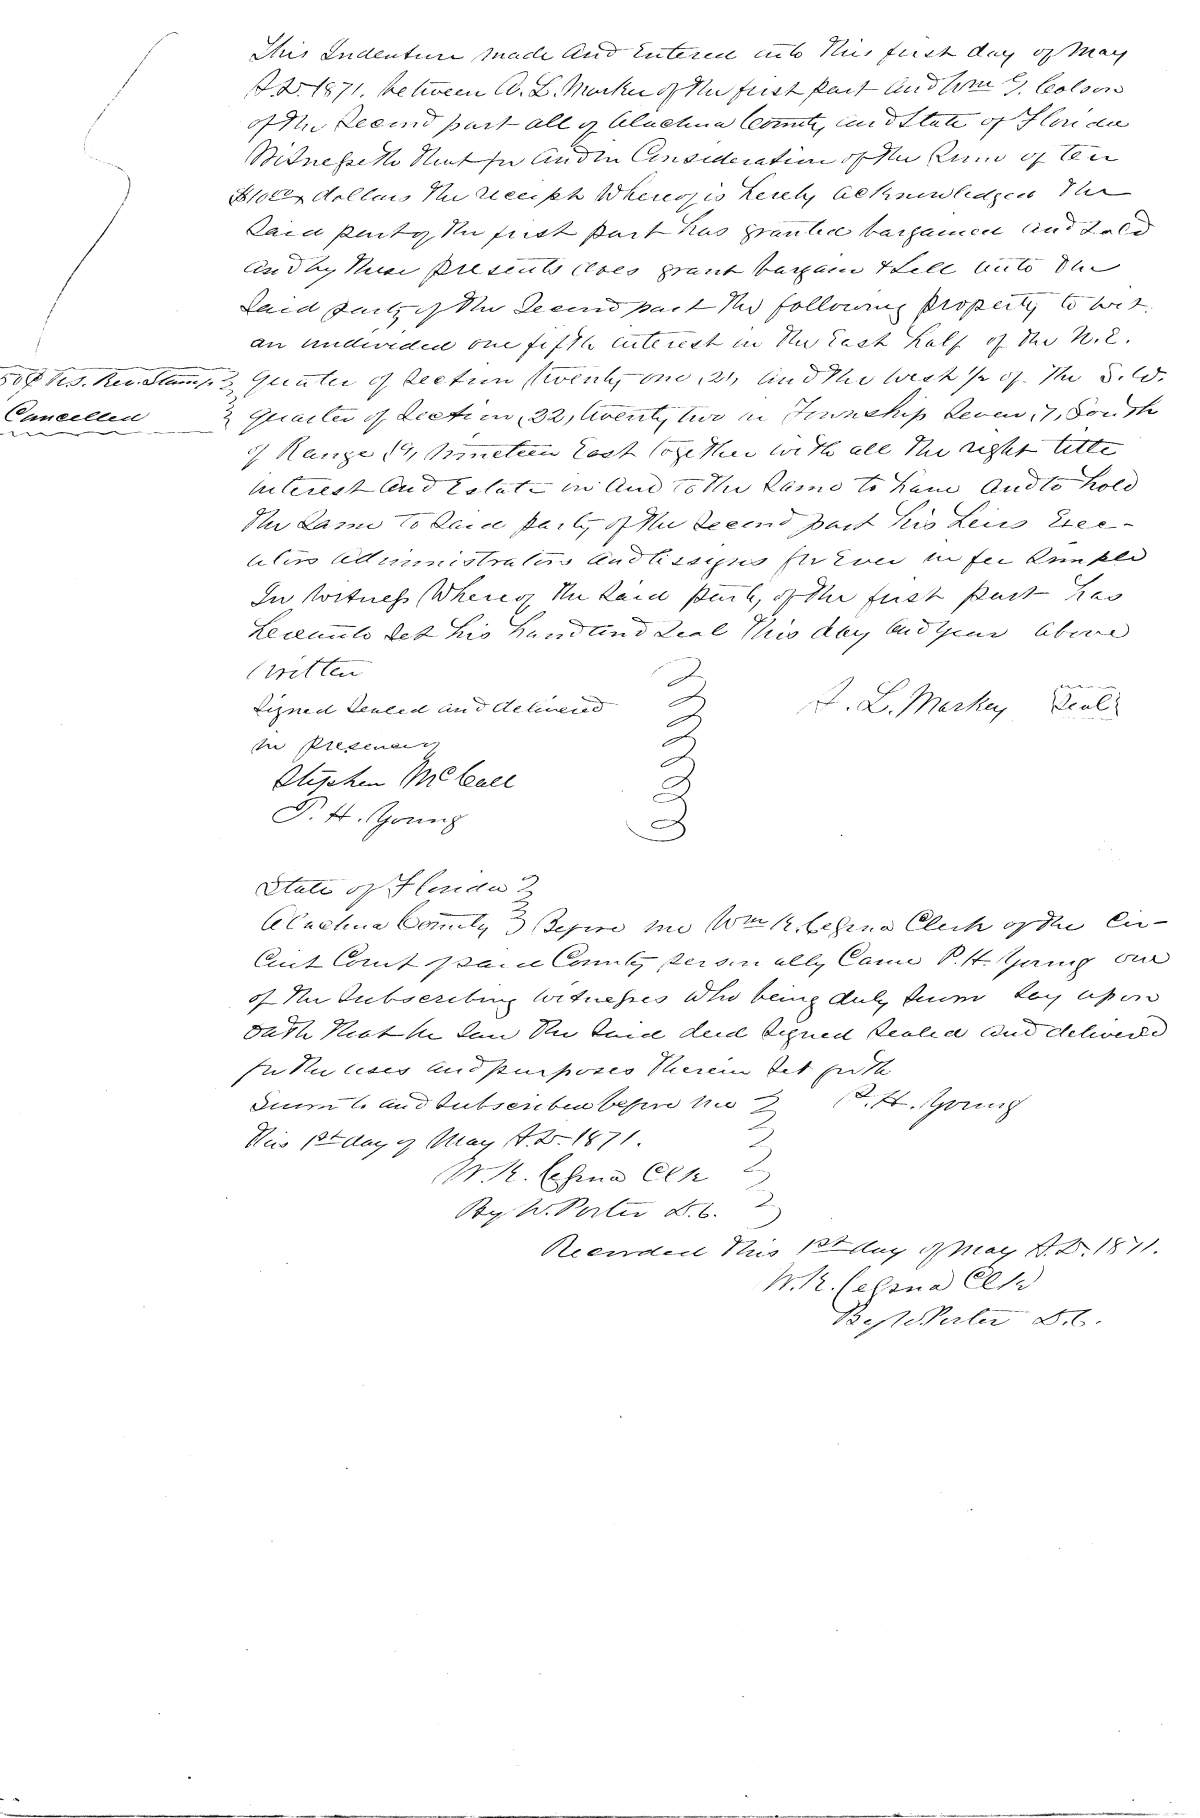 This Indenture made and Entered into this first day of May
A.D. 1871. between A. L. Markey of the first part and Wm G. Colson
of the Second part all of Alachua County, and State of Florida
Witnesseth that for and in Consideration of the Sum of ten
$10.00 dollars the receipt Whereof is hereby acknowledged the
Said party of the first part has granted bargained and Sold
and by these presents does grant bargain & Sell unto the
Said party of the Second part the following property to wit.
an undivided one fifth interest in the East half of the N.E.
50¢ U.S. Rev. Stamp Quarter of Section twenty one, 21, and the West 1/2 of the S.W.
Cancelled Quarter of Section, 22, twenty two in Township Seven, 7, South
of Range, 19, Nineteen East together with all the right title
interest and Estate in and to the Same to have and to hold
the Same to Said party of the Second part his heirs Exec-
utors administrators and assigns for Ever in fee Simple
In Witness Whereof the Said party of the first part has
hereunto Set his hand and Seal this day and year above
Written
Signed Sealed and delivered A. L. Markey Seal
in presence of
Stephen McCall
P. H. Young
State of Florida
Alachua County Before me Wm K. Cessna Clerk of the Cir-
cuit Court of said County personally Came P. H. Young one
of the Subscribing witnesses who being duly Sworn Say upon
oath that he Saw the Said deed Signed Sealed and delivered
for the uses and purposes therein Set forth
Sworn to and Subscribed before me P. H. Young
this 1st day of May A.D. 1871.
W. K. Cessna Clk
By W. Porter D.C.
Recorded this 1st day of May A.D. 1871.
W. K. Cessna Clk
By W. Porter D.C.